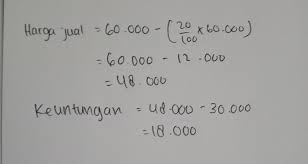 Harga jual = 60.000 - (20/100 × 60.000)
= 60.000 - 12.000
= 48.000
Keuntungan = 48.000 - 30.000
= 18.000